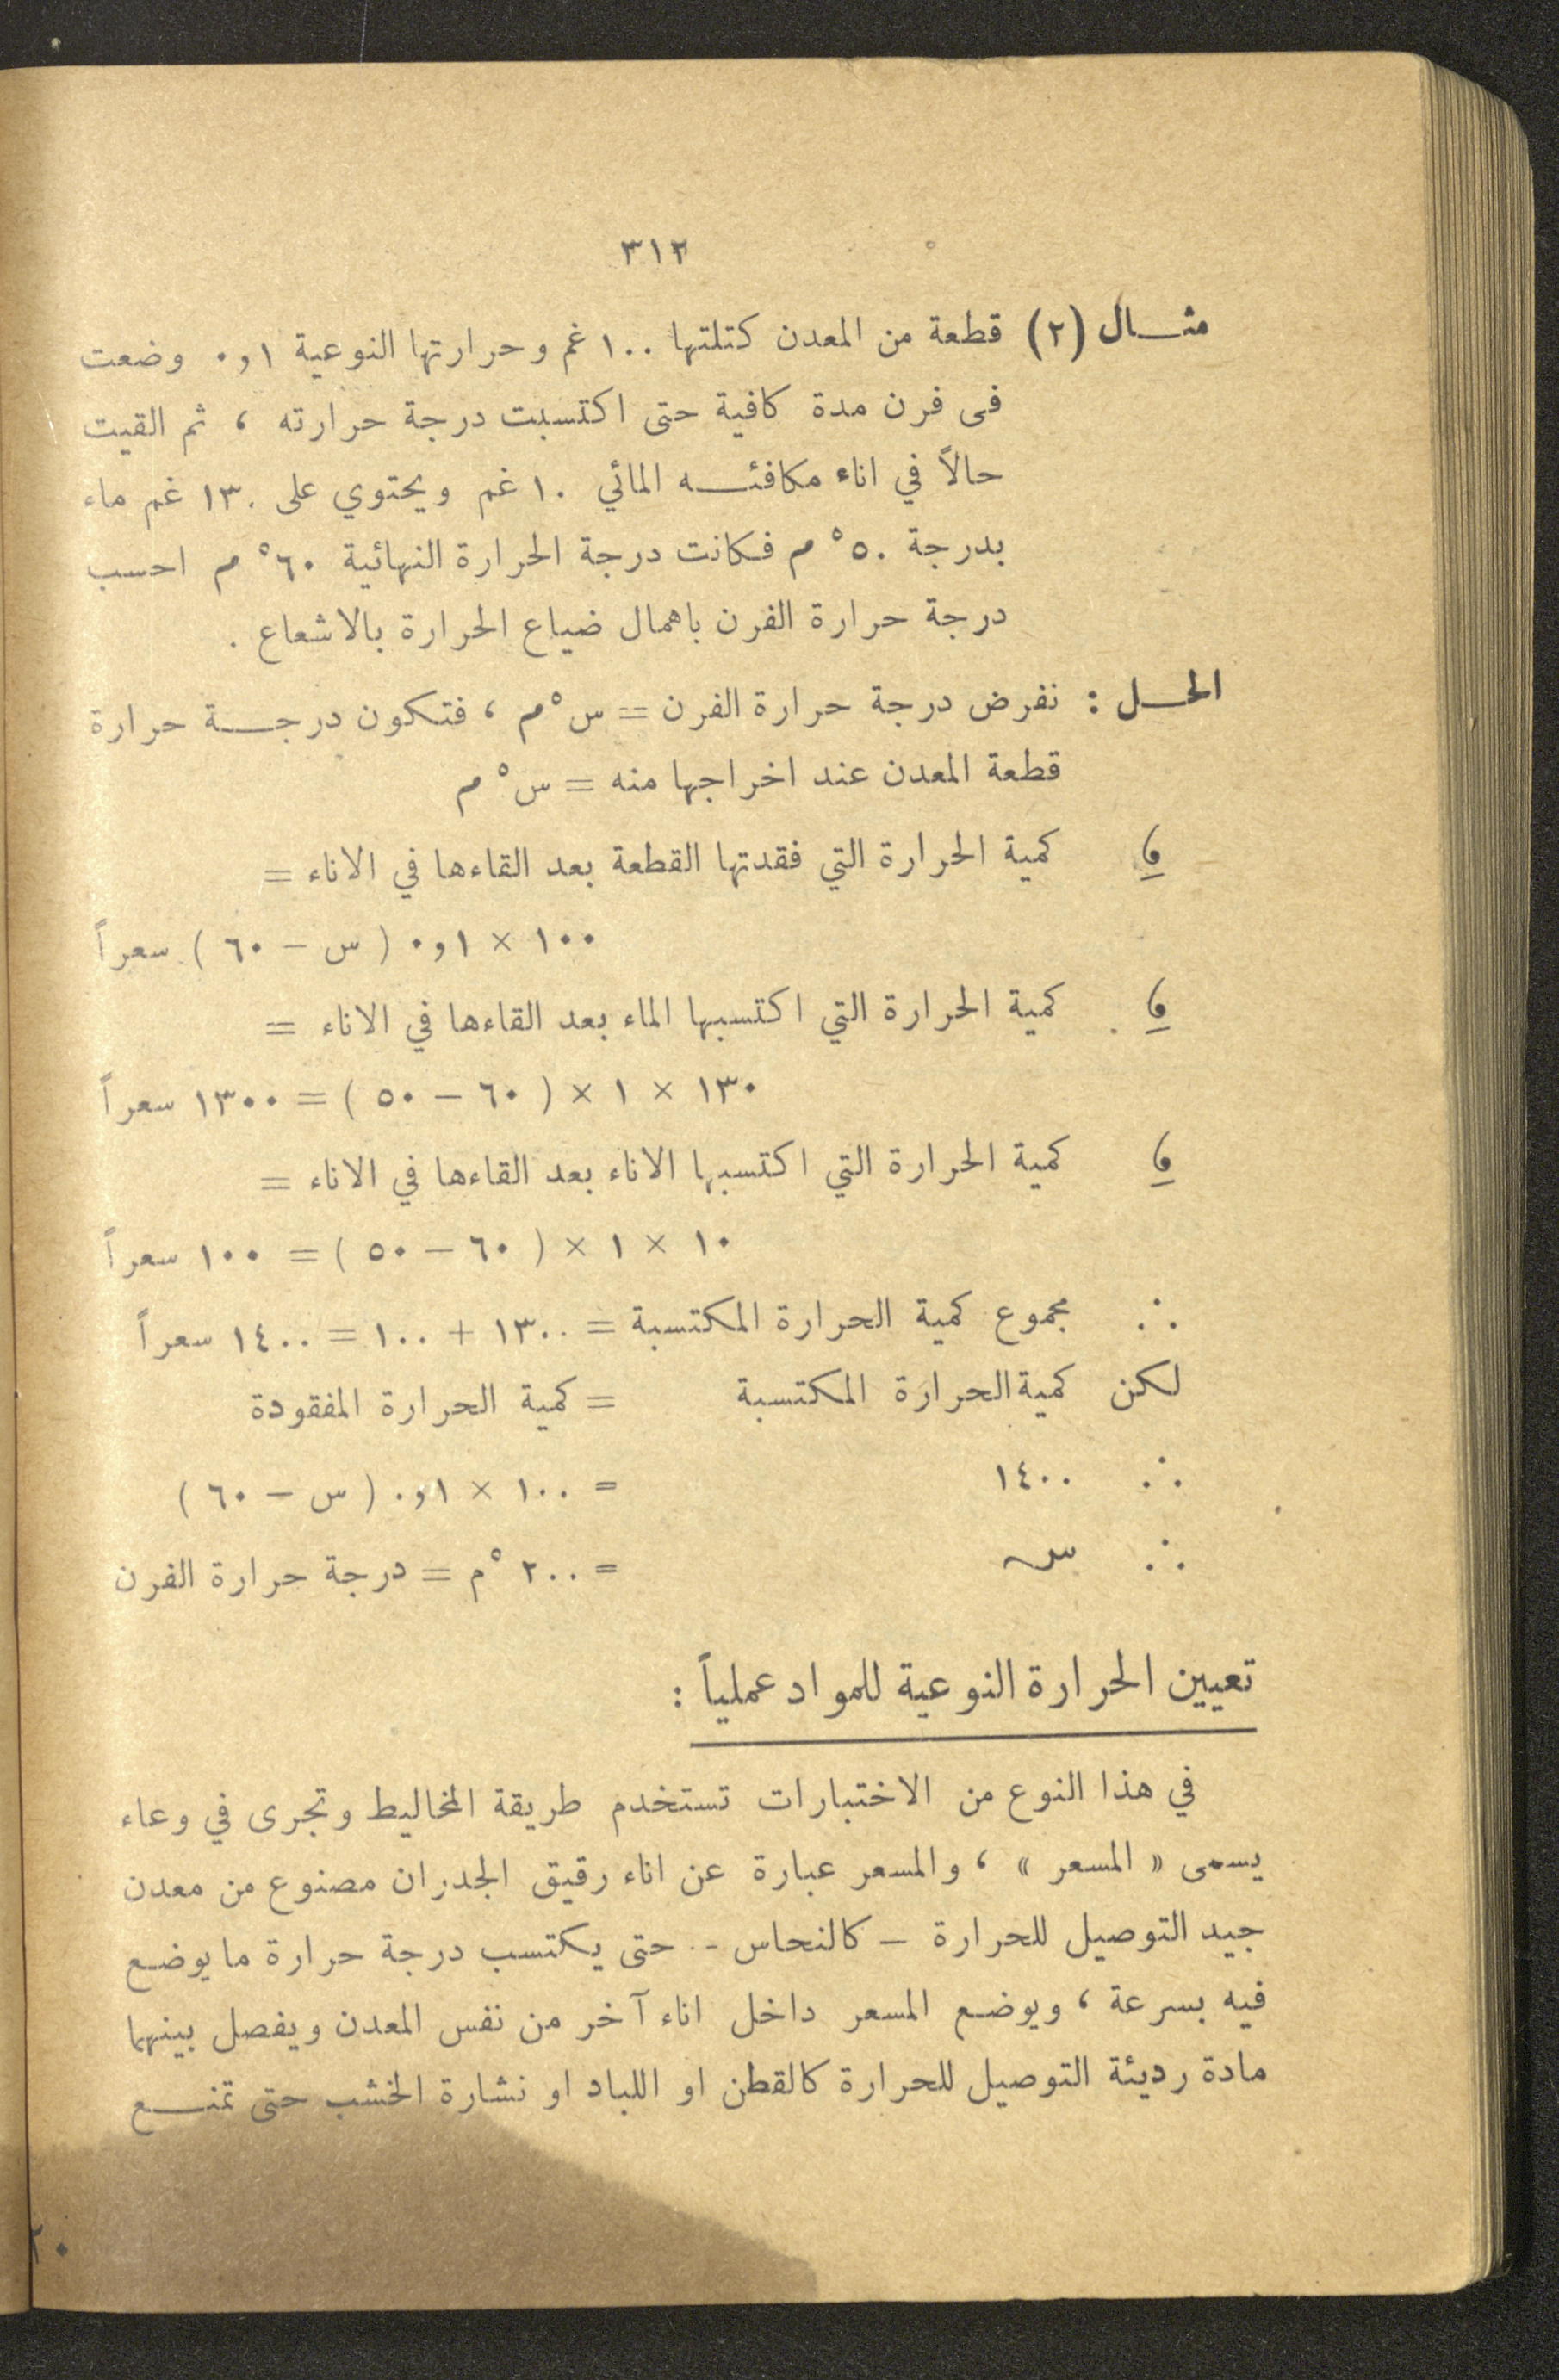 ٣١٢
مثـــال (٢) قطعة من المعدن كتلتها ١٠٠ غم وحرارتها النوعية ٠و١ وضعت
فى فرن مدة كافية حتى اكتسبت درجة حرارته ، ثم القيت
حالاً في اناء مكافئـــه المائي ١٠ غم ويحتوي على ١٣٠ غم ماء
بدرجة ٥٠° م فكانت درجة الحرارة النهائية ٦٠° م احسب
درجة حرارة الفرن باهمال ضياع الحرارة بالاشعاع .
الحـــل : نفرض درجة حرارة الفرن = س°م ، فتكون درجـــة حرارة
قطعة المعدن عند اخراجها منه = س° م
و كمية الحرارة التي فقدتها القطعة بعد القاءها في الاناء =
١٠٠ × ٠و١ ( س – ٦٠ ) سعراً
و كمية الحرارة التي اكتسبها الماء بعد القاءها في الاناء =
١٣٠ × ١ × ( ٦٠ – ٥٠ ) = ١٣٠٠ سعراً
و كمية الحرارة التي اكتسبها الاناء بعد القاءها في الاناء =
١٠ × ١ × ( ٦٠ – ٥٠ ) = ١٠٠ سعراً
∴ مجموع كمية الحرارة المكتسبة = ١٣٠٠ + ١٠٠ = ١٤٠٠ سعراً
لكن كمية الحرارة المكتسبة = كمية الحرارة المفقودة
∴ ١٤٠٠ = ١٠٠ × ٠و١ ( س – ٦٠ )
∴ س = ٢٠٠ °م = درجة حرارة الفرن
تعيين الحرارة النوعية للمواد عملياً :
في هذا النوع من الاختبارات تستخدم طريقة المخاليط وتجرى في وعاء
يسمى « المسعر » ، والمسعر عبارة عن اناء رقيق الجدران مصنوع من معدن
جيد التوصيل للحرارة – كالنحاس – حتى يكتسب درجة حرارة ما يوضع
فيه بسرعة ، ويوضع المسعر داخل اناء آخر من نفس المعدن ويفصل بينهما
مادة رديئة التوصيل للحرارة كالقطن او اللباد او نشارة الخشب حتى تمنـــع
٢٠